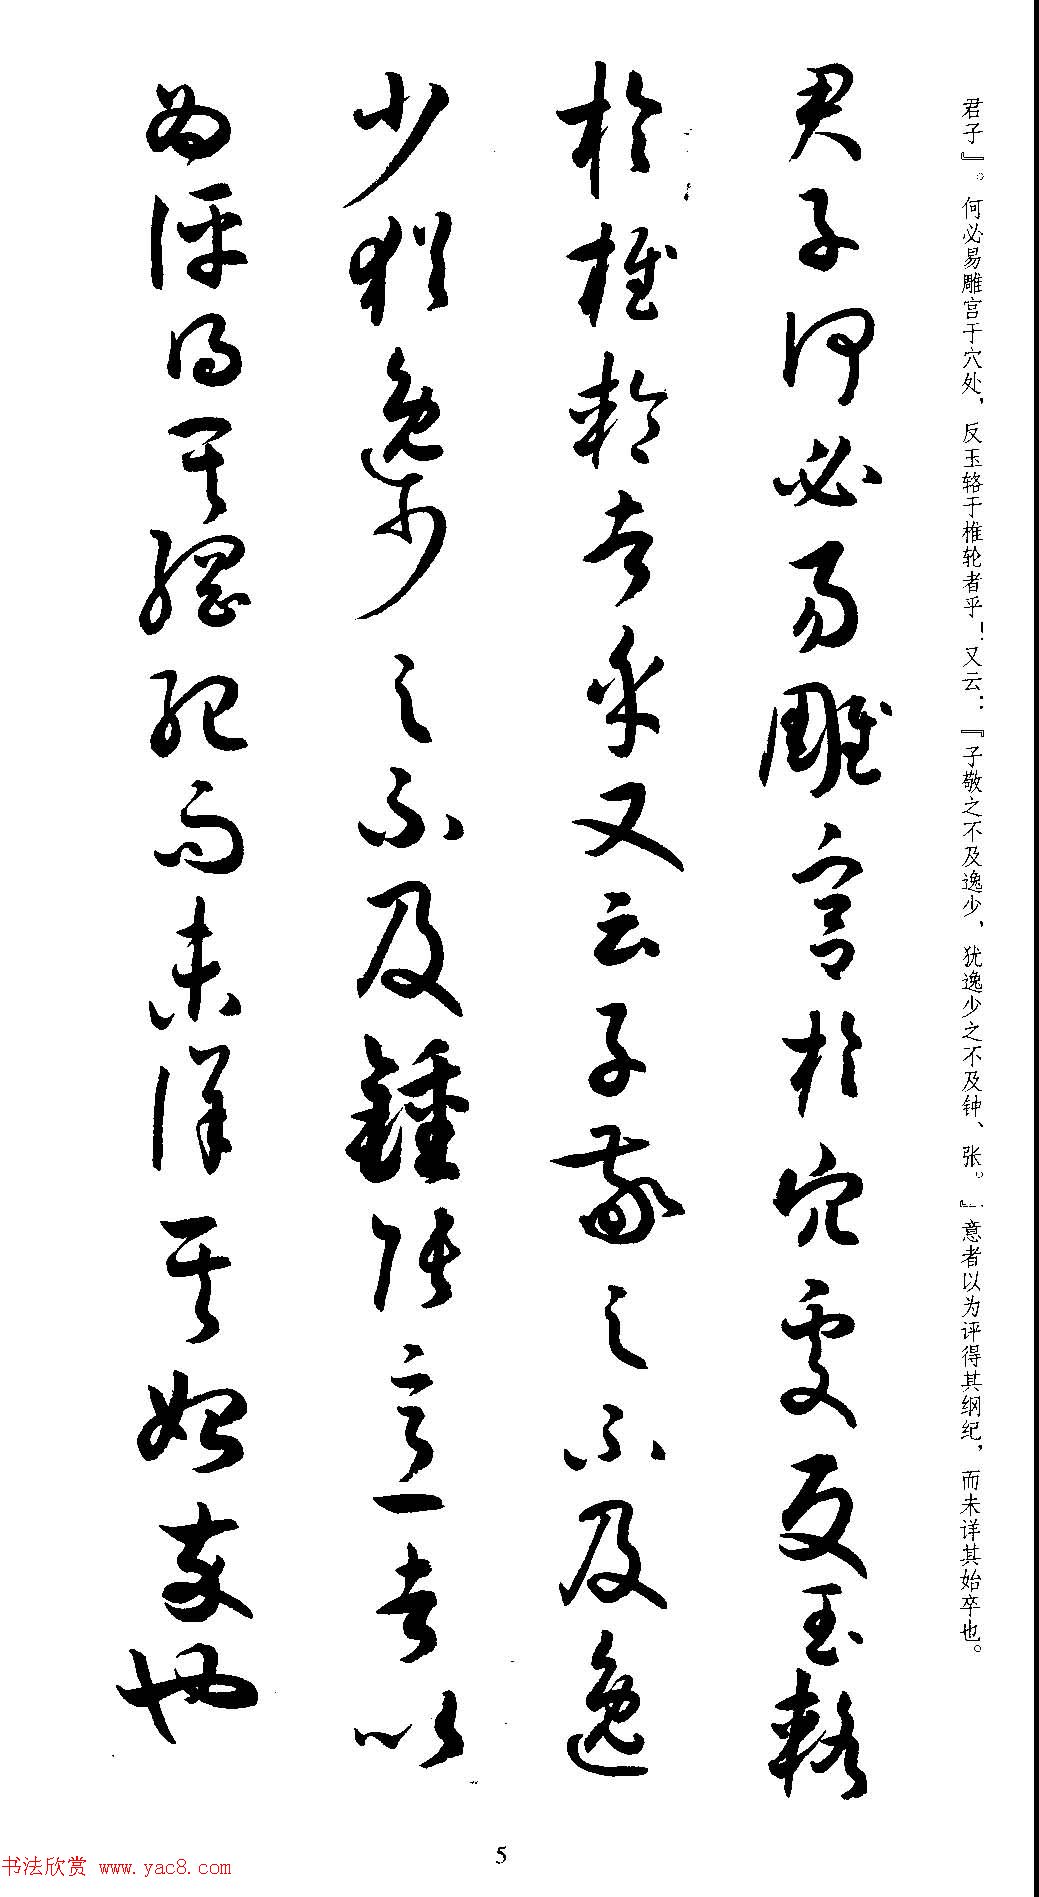 君子』。何必易雕宫于穴处，反玉辂于椎轮者乎！又云：『子敬之不及逸少，犹逸少之不及钟、张。』意者以为评得其纲纪，而未详其始卒也。
君子何必易雕宮於穴處反玉輅
於椎輪者乎又云子敬之不及逸
少猶逸少之不及鍾張意者以
為評得其綱紀而未詳其始卒也
5
书法欣赏 www.yac8.com